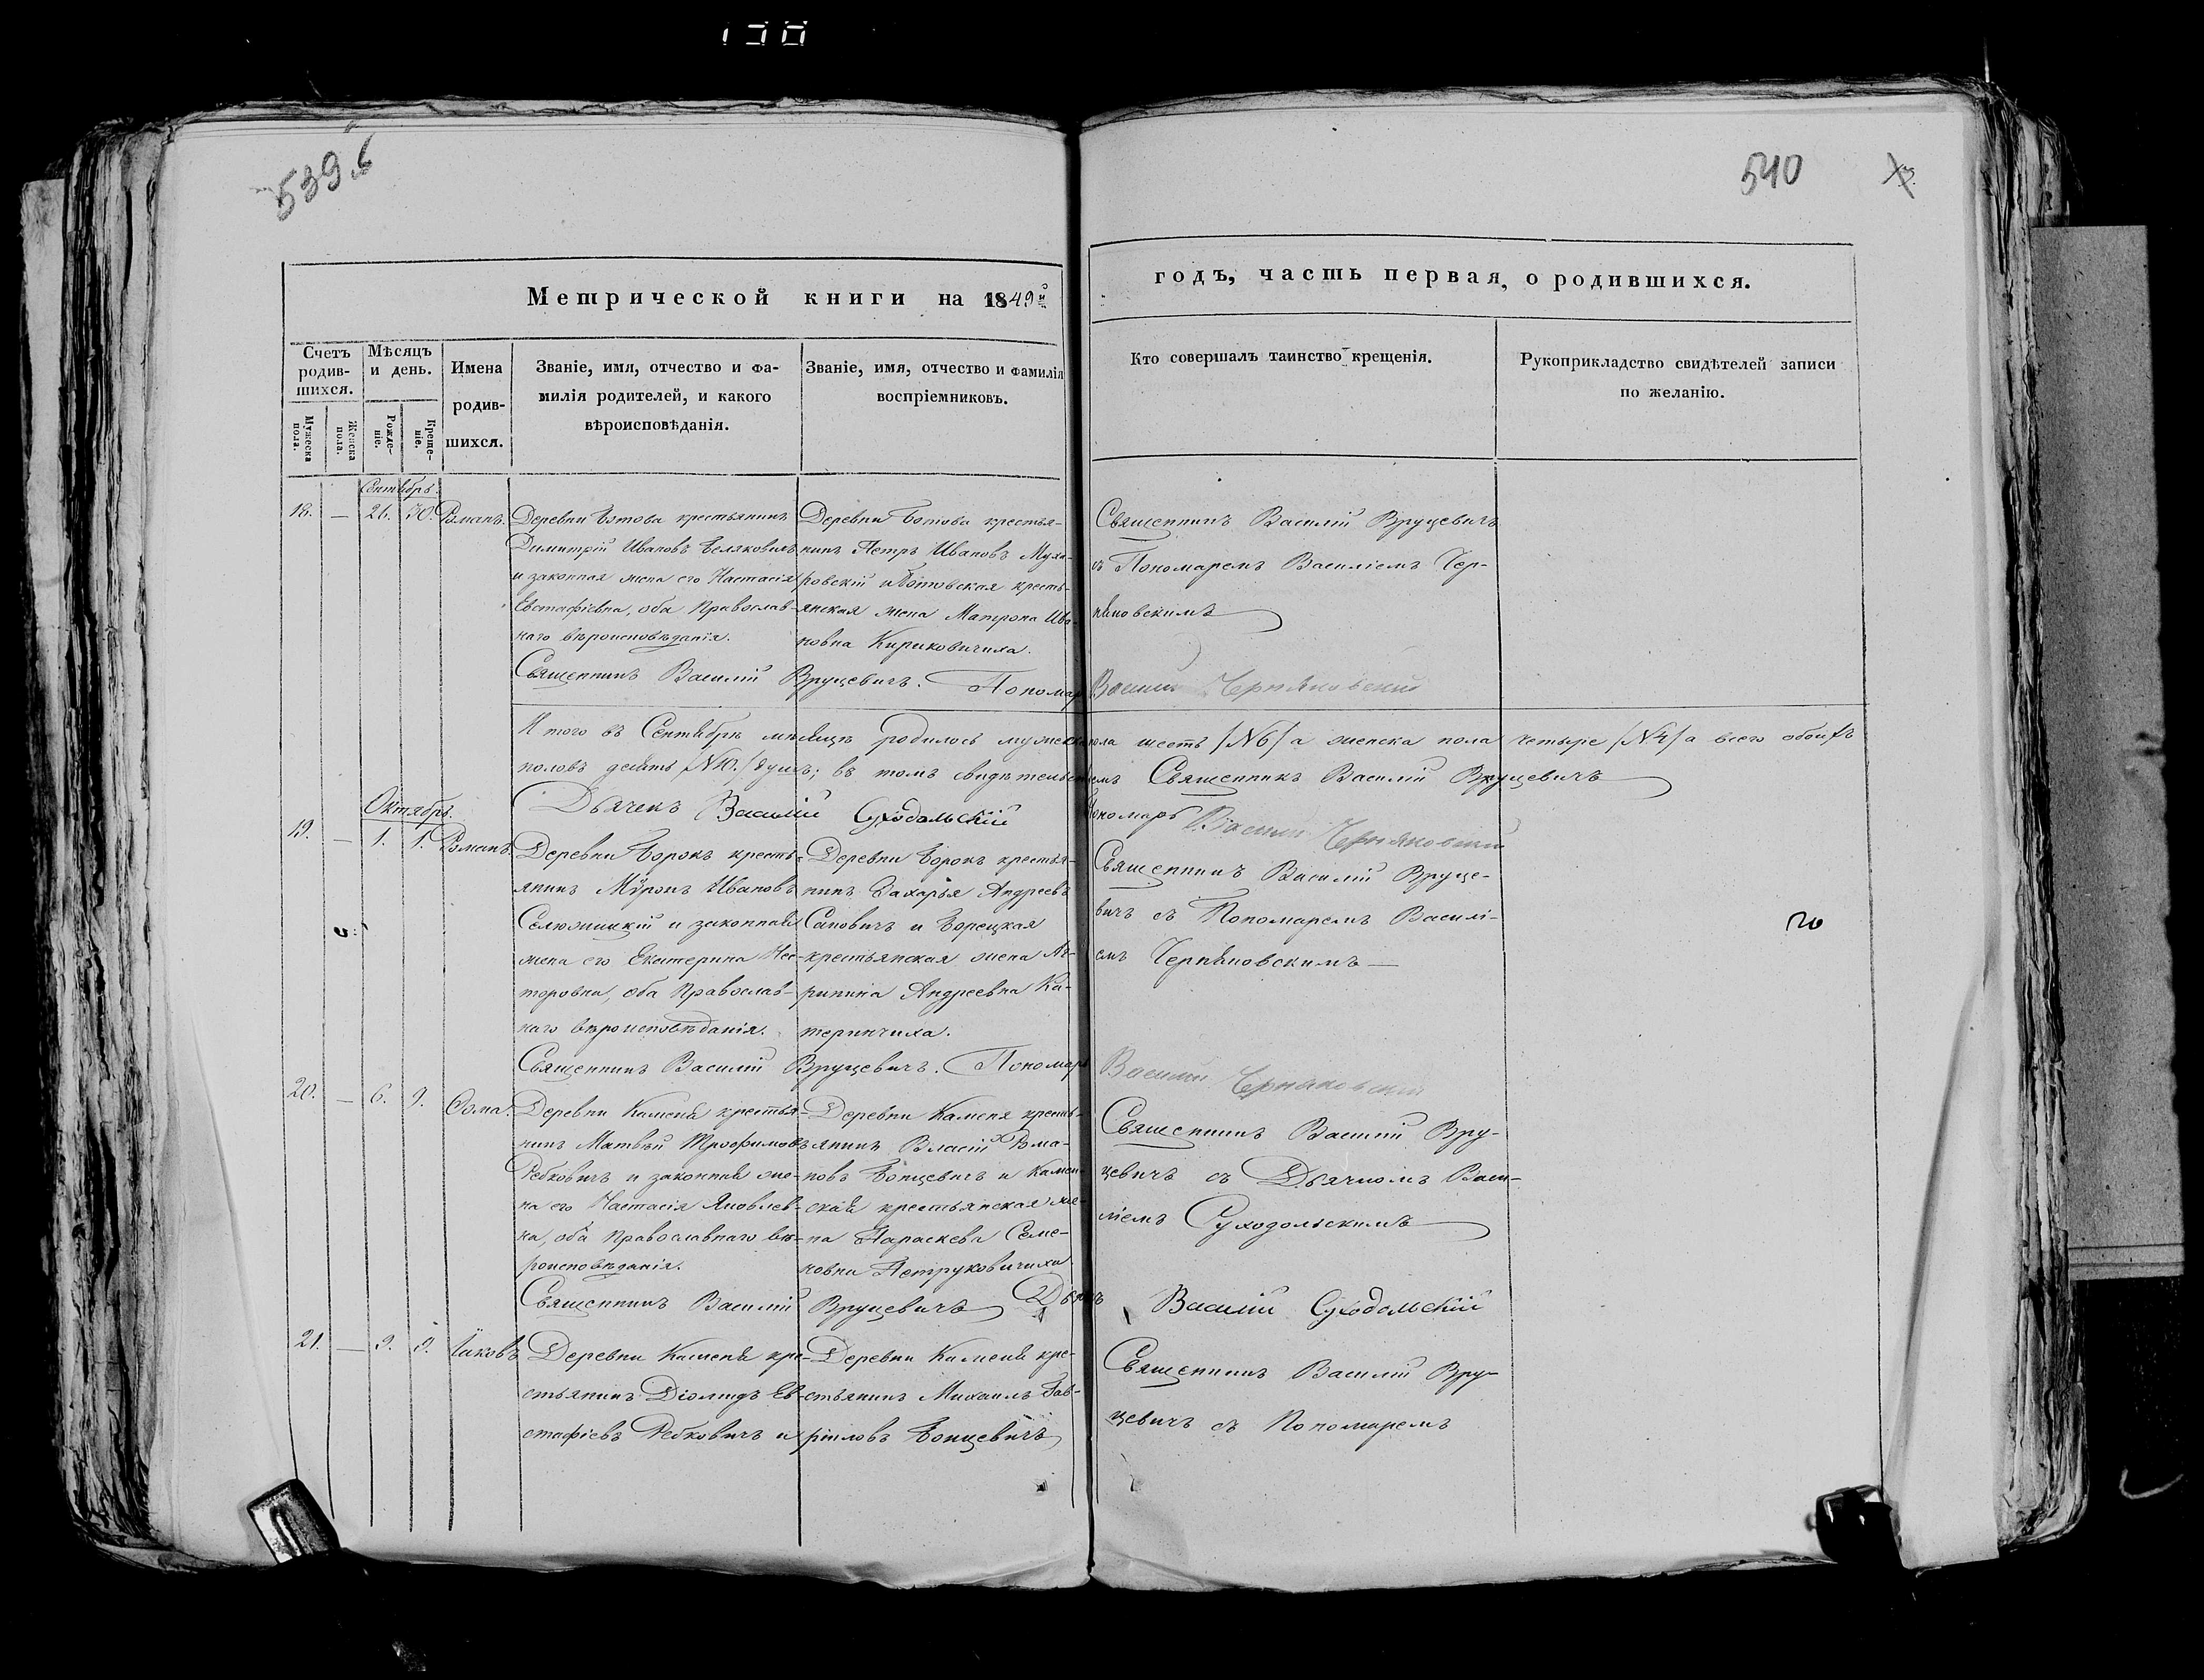 138
539 б
540
Метрической книги на 1849й
годъ, часть первая, о родившихся.
Счетъ родив-шихся.
Мужеска пола.
Женска пола.
Мѣсяцъ и день.
Рожде-ніе.
Креще-ніе.
Имена
родив-
шихся.
Званіе, имя, отчество и фа-
милія родителей, и какого
вѣроисповѣданія.
Званіе, имя, отчество и фамилія
воспріемниковъ.
Кто совершалъ таинство крещенія.
Рукоприкладство свидѣтелей записи
по желанію.
Сентябрь.
18. — 26. 30. Романъ.
Деревни Ботова крестьянинъ
Димитрій Ивановъ Беляковичъ
и законная жена его Настасія
Евстафіевна, оба Православ-
наго вѣроисповѣданія.
Деревни Ботова крестья-
нинъ Петръ Ивановъ Муха-
ровскій и Ботовская кресть-
янская жена Матрона Ива-
новна Кириковичиха.
Священникъ Василій Вруцевичъ
съ Пономаремъ Василіемъ Чер-
няковскимъ
Священникъ Василій Вруцевичъ. Пономарь Василій Черняковскій
И того въ Сентябрѣ мѣсяцѣ родилось мужеска пола шесть /№6/ а женска пола четыре /№4/ а всего обоихъ
половъ десять /№10./ душъ; въ томъ свидѣтельствуемъ Священникъ Василій Вруцевичъ
Дьячекъ Василій Суходольскій Пономарь Василій Черняковскій
Октябрь.
19. — 1. 1. Романъ.
Деревни Борокъ кресть-
янинъ Мѵронъ Ивановъ
Селюжицкій и законная
жена его Екатерина Нес-
торовна, оба Православ-
наго вѣроисповѣданія.
Деревни Борокъ крестья-
нинъ Захарья Андреевъ
Сановичъ и Борецкая
крестьянская жена Аг-
рипина Андреевна Ка-
теринчиха.
Священникъ Василій Вруце-
вичъ съ Пономаремъ Василі-
емъ Черняковскимъ —
Священникъ Василій Вруцевичъ. Пономарь Василій Черняковскій
20. — 6. 9. Ѳома.
Деревни Каменя крестья-
нинъ Матвѣй Трофимовъ
Ребковичъ и законная же-
на его Настасія Яковлев-
на, оба Православнаго вѣ-
роисповѣданія.
Деревни Каменя кресть-
янинъ Власій Рома-
новъ Бонцевичъ и Камен-
ская крестьянская же-
на Параскева Семе-
новна Петруковичиха
Священникъ Василій Вру-
цевичъ съ Дьячкомъ Васи-
ліемъ Суходольскимъ
Священникъ Василій Вруцевичъ Дьячекъ Василій Суходольскій
21. — 9. 9. Іаковъ
Деревни Каменя кре-
стьянинъ Діомидъ Ев-
стафіевъ Ребковичъ и
Деревни Каменя кре-
стьянинъ Михаилъ Гав-
ріиловъ Бонцевичъ
Священникъ Василій Вру-
цевичъ съ Пономаремъ